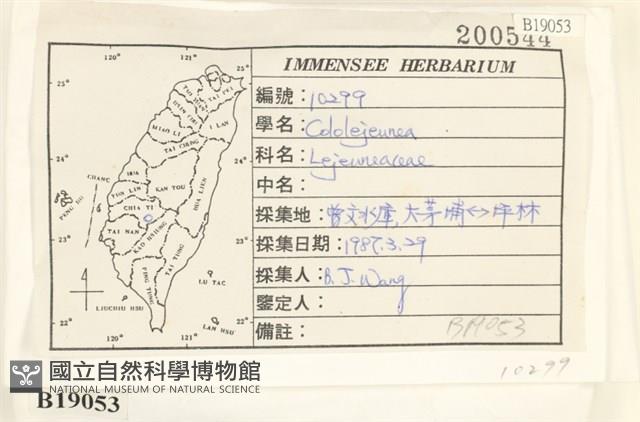 B19053
200544
IMMENSEE HERBARIUM
編號：10299
學名：Cololejeunea
科名：Lejeuneaceae
中名：
採集地：曾文水庫,大茅埔↔坪林
採集日期：1987.3.29
採集人：B.J. Wang
鑒定人：
備註：
B19053
10299
120° 121°
25° 25°
TAI PEI
I LAN
MIAO LI
TAI CHUNG
CHANG
HUA
YUN LIN
KAN TOU
HUA LIEN
PENG HU
CHIA YI
TAI NAN
KAO HSIUNG
TAI TUNG
PING TUNG
24° 24°
23° 23°
22° 22°
LU TAO
LIUCHIU HSU
LAN HSU
120° 121°
國立自然科學博物館
NATIONAL MUSEUM OF NATURAL SCIENCE
B19053